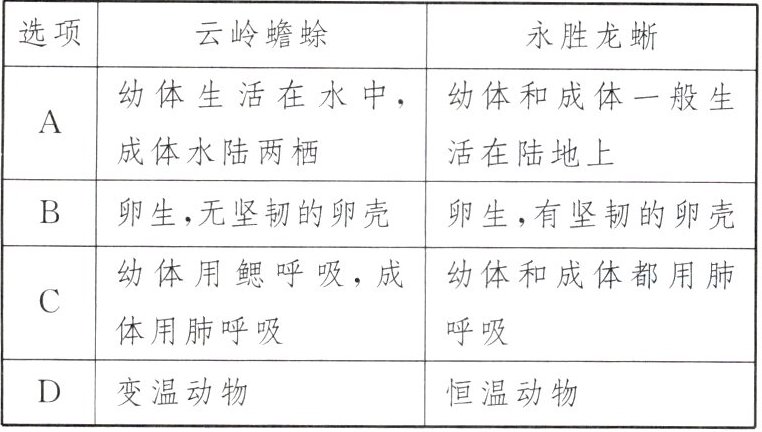 选项 云岭蟾蜍 永胜龙蜥
幼体生活在水中, 幼体和成体一般生
A
成体水陆两栖 活在陆地上
B 卵生,无坚韧的卵壳 卵生,有坚韧的卵壳
幼体用鳃呼吸,成 幼体和成体都用肺
C
体用肺呼吸 呼吸
D 变温动物 恒温动物